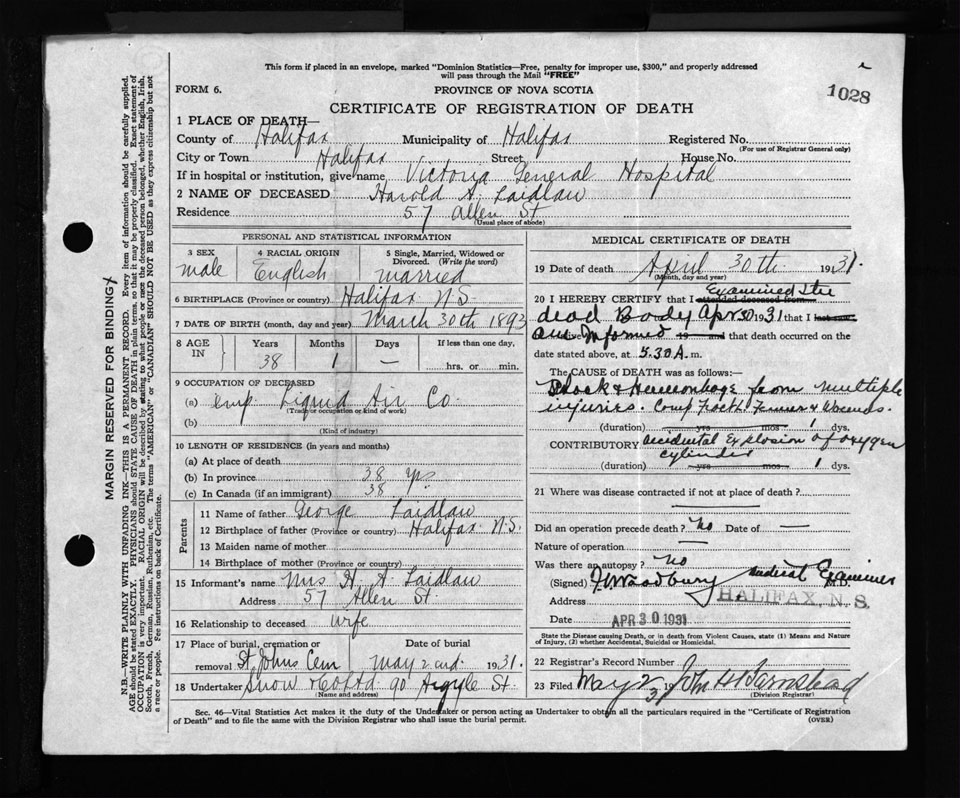 This form if placed in an envelope, marked "Dominion Statistics—Free, penalty for improper use, $300," and properly addressed
will pass through the Mail "FREE"
FORM 6.
PROVINCE OF NOVA SCOTIA
1028
CERTIFICATE OF REGISTRATION OF DEATH
1 PLACE OF DEATH—
County of Halifax Municipality of Halifax Registered No.
(For use of Registrar General only)
City or Town Halifax Street House No.
If in hospital or institution, give name Victoria General Hospital
2 NAME OF DECEASED Harold A. Laidlaw
Residence 57 Allen St
(Usual place of abode)
PERSONAL AND STATISTICAL INFORMATION
3 SEX 4 RACIAL ORIGIN 5 Single, Married, Widowed or
Divorced. (Write the word)
male English married
6 BIRTHPLACE (Province or country) Halifax N.S.
7 DATE OF BIRTH (month, day and year) March 30th 1893
8 AGE IN Years Months Days If less than one day,
38 1 — hrs. or min.
9 OCCUPATION OF DECEASED
(a) Emp. Liquid Air Co.
(Trade or occupation or kind of work)
(b)
(Kind of industry)
10 LENGTH OF RESIDENCE (in years and months)
(a) At place of death
(b) In province 38 yrs
(c) In Canada (if an immigrant) 38
Parents
11 Name of father George Laidlaw
12 Birthplace of father (Province or country) Halifax N.S.
13 Maiden name of mother
14 Birthplace of mother (Province or country)
15 Informant's name Mrs H. A. Laidlaw
Address 57 Allen St.
16 Relationship to deceased wife
17 Place of burial, cremation or Date of burial
removal St. Johns Cem May 2nd 1931.
18 Undertaker Snow & Co Ltd 90 Argyle St.
(Name and address)
MEDICAL CERTIFICATE OF DEATH
19 Date of death April 30th 1931.
(Month, day and year)
Examined the
20 I HEREBY CERTIFY that I attended deceased from
dead Body Apr 30 1931 that I last saw
am Informed 19 and that death occurred on the
date stated above, at 5.30 A. m.
The CAUSE OF DEATH was as follows:—
Shock & Hemorrhage from multiple
injuries. Comp Fracth Femur & Wounds.
(duration) yrs mos 1 dys.
CONTRIBUTORY accidental Explosion of oxygen
cylinder
(duration) yrs mos 1 dys.
21 Where was disease contracted if not at place of death?
Did an operation precede death? No Date of —
Nature of operation —
Was there an autopsy? No
(Signed) Medical Examiner M.D.
Address HALIFAX, N. S.
Date APR 30 1931
State the Disease causing Death, or in death from Violent Causes, state (1) Means and Nature
of Injury, (2) whether Accidental, Suicidal or Homicidal.
22 Registrar's Record Number
23 Filed May 2 31 John H Barnstead
(Division Registrar)
Sec. 46—Vital Statistics Act makes it the duty of the Undertaker or person acting as Undertaker to obtain all the particulars required in the "Certificate of Registration
of Death" and to file the same with the Division Registrar who shall issue the burial permit.
(OVER)
MARGIN RESERVED FOR BINDING
N.B.—WRITE PLAINLY WITH UNFADING INK—THIS IS A PERMANENT RECORD. Every item of information should be carefully supplied.
AGE should be stated EXACTLY. PHYSICIANS should STATE CAUSE OF DEATH in plain terms, so that it may be properly classified. Exact statement of
OCCUPATION is very important. RACIAL ORIGIN will be described by stating to what people or race the deceased person belonged, whether English, Irish,
Scotch, French, German, Russian, Ruthenian, etc. The terms "AMERICAN" or "CANADIAN" SHOULD NOT BE USED as they express citizenship but not
a race or people. Fee instructions on back of Certificate.